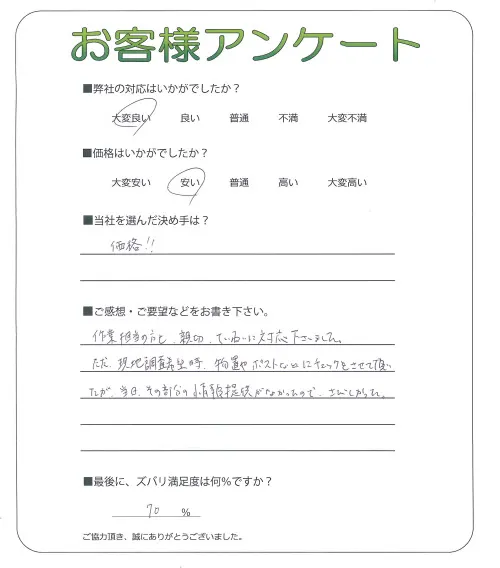 お客様アンケート
■弊社の対応はいかがでしたか？
大変良い 良い 普通 不満 大変不満
■価格はいかがでしたか？
大変安い 安い 普通 高い 大変高い
■当社を選んだ決め手は？
価格!!
■ご感想・ご要望などをお書き下さい。
作業担当の方も、親切、ていねいに対応下さいました。
ただ、現地調査時、物置やポストなどにチェックをさせて頂い
たが、当日、その部分の情報提供がなかったので、さびしかった。
■最後に、ズバリ満足度は何％ですか？
70 ％
ご協力頂き、誠にありがとうございました。